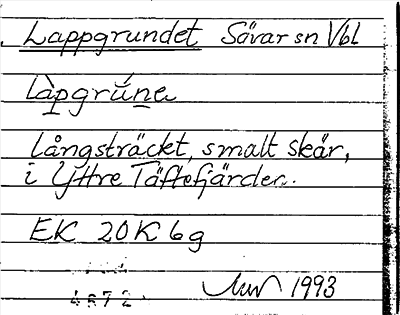 Lappgrundet Sävar sn Vbl
làpgrúne
Långsträckt, smalt skär,
i Yttre Täftefjärden.
EK 20K 6g
1993